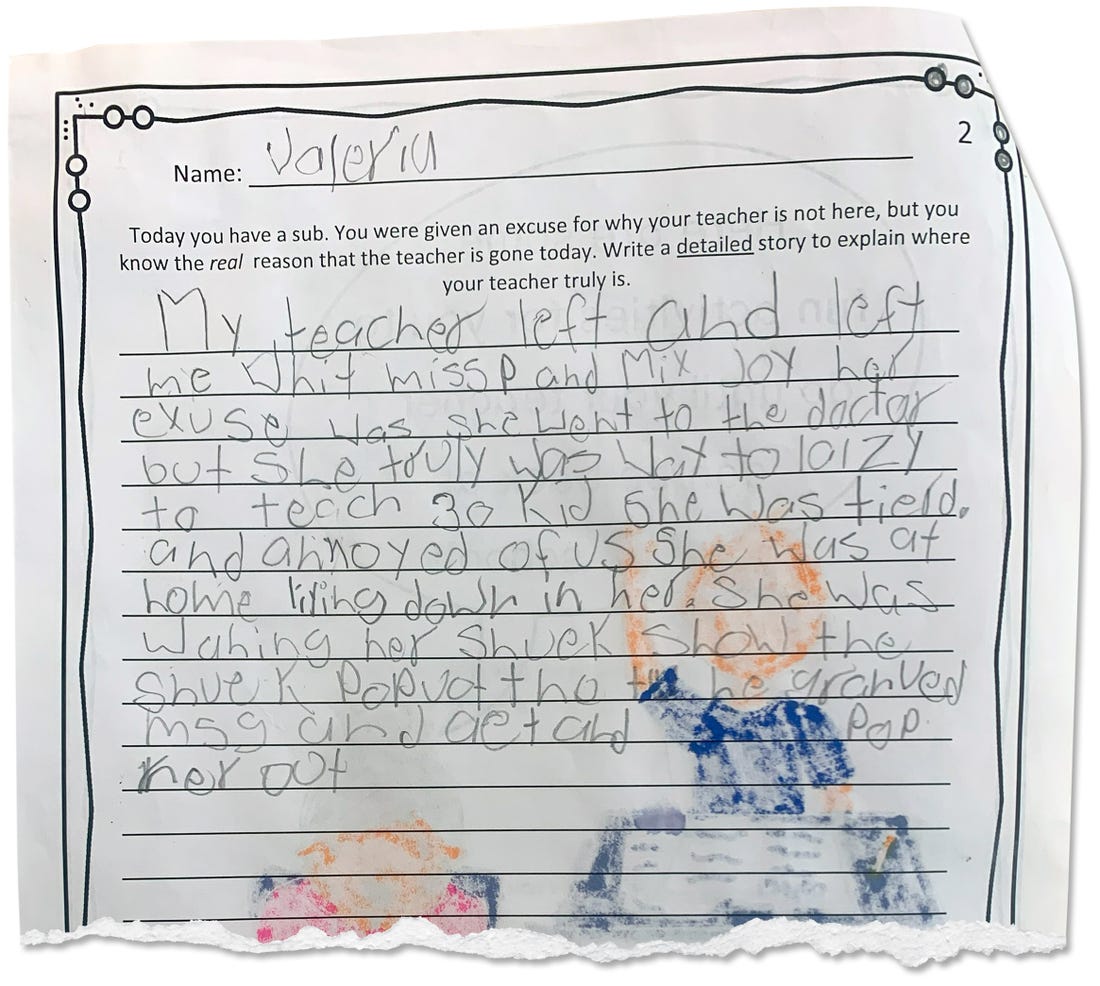 2
Name: Valeria
Today you have a sub. You were given an excuse for why your teacher is not here, but you
know the real reason that the teacher is gone today. Write a detailed story to explain where
your teacher truly is.
My teacher left and left
me Whit miss P and Mix Joy her
exuse was she went to the doctar
but She truly was Vay to laizy
to teach 30 Kid She was tierd.
and annoyed of us She was at
home liying down in her. She was
Wahing her Shuek Show the
Shuek Popuot the he
msg and aet and Pop
her out